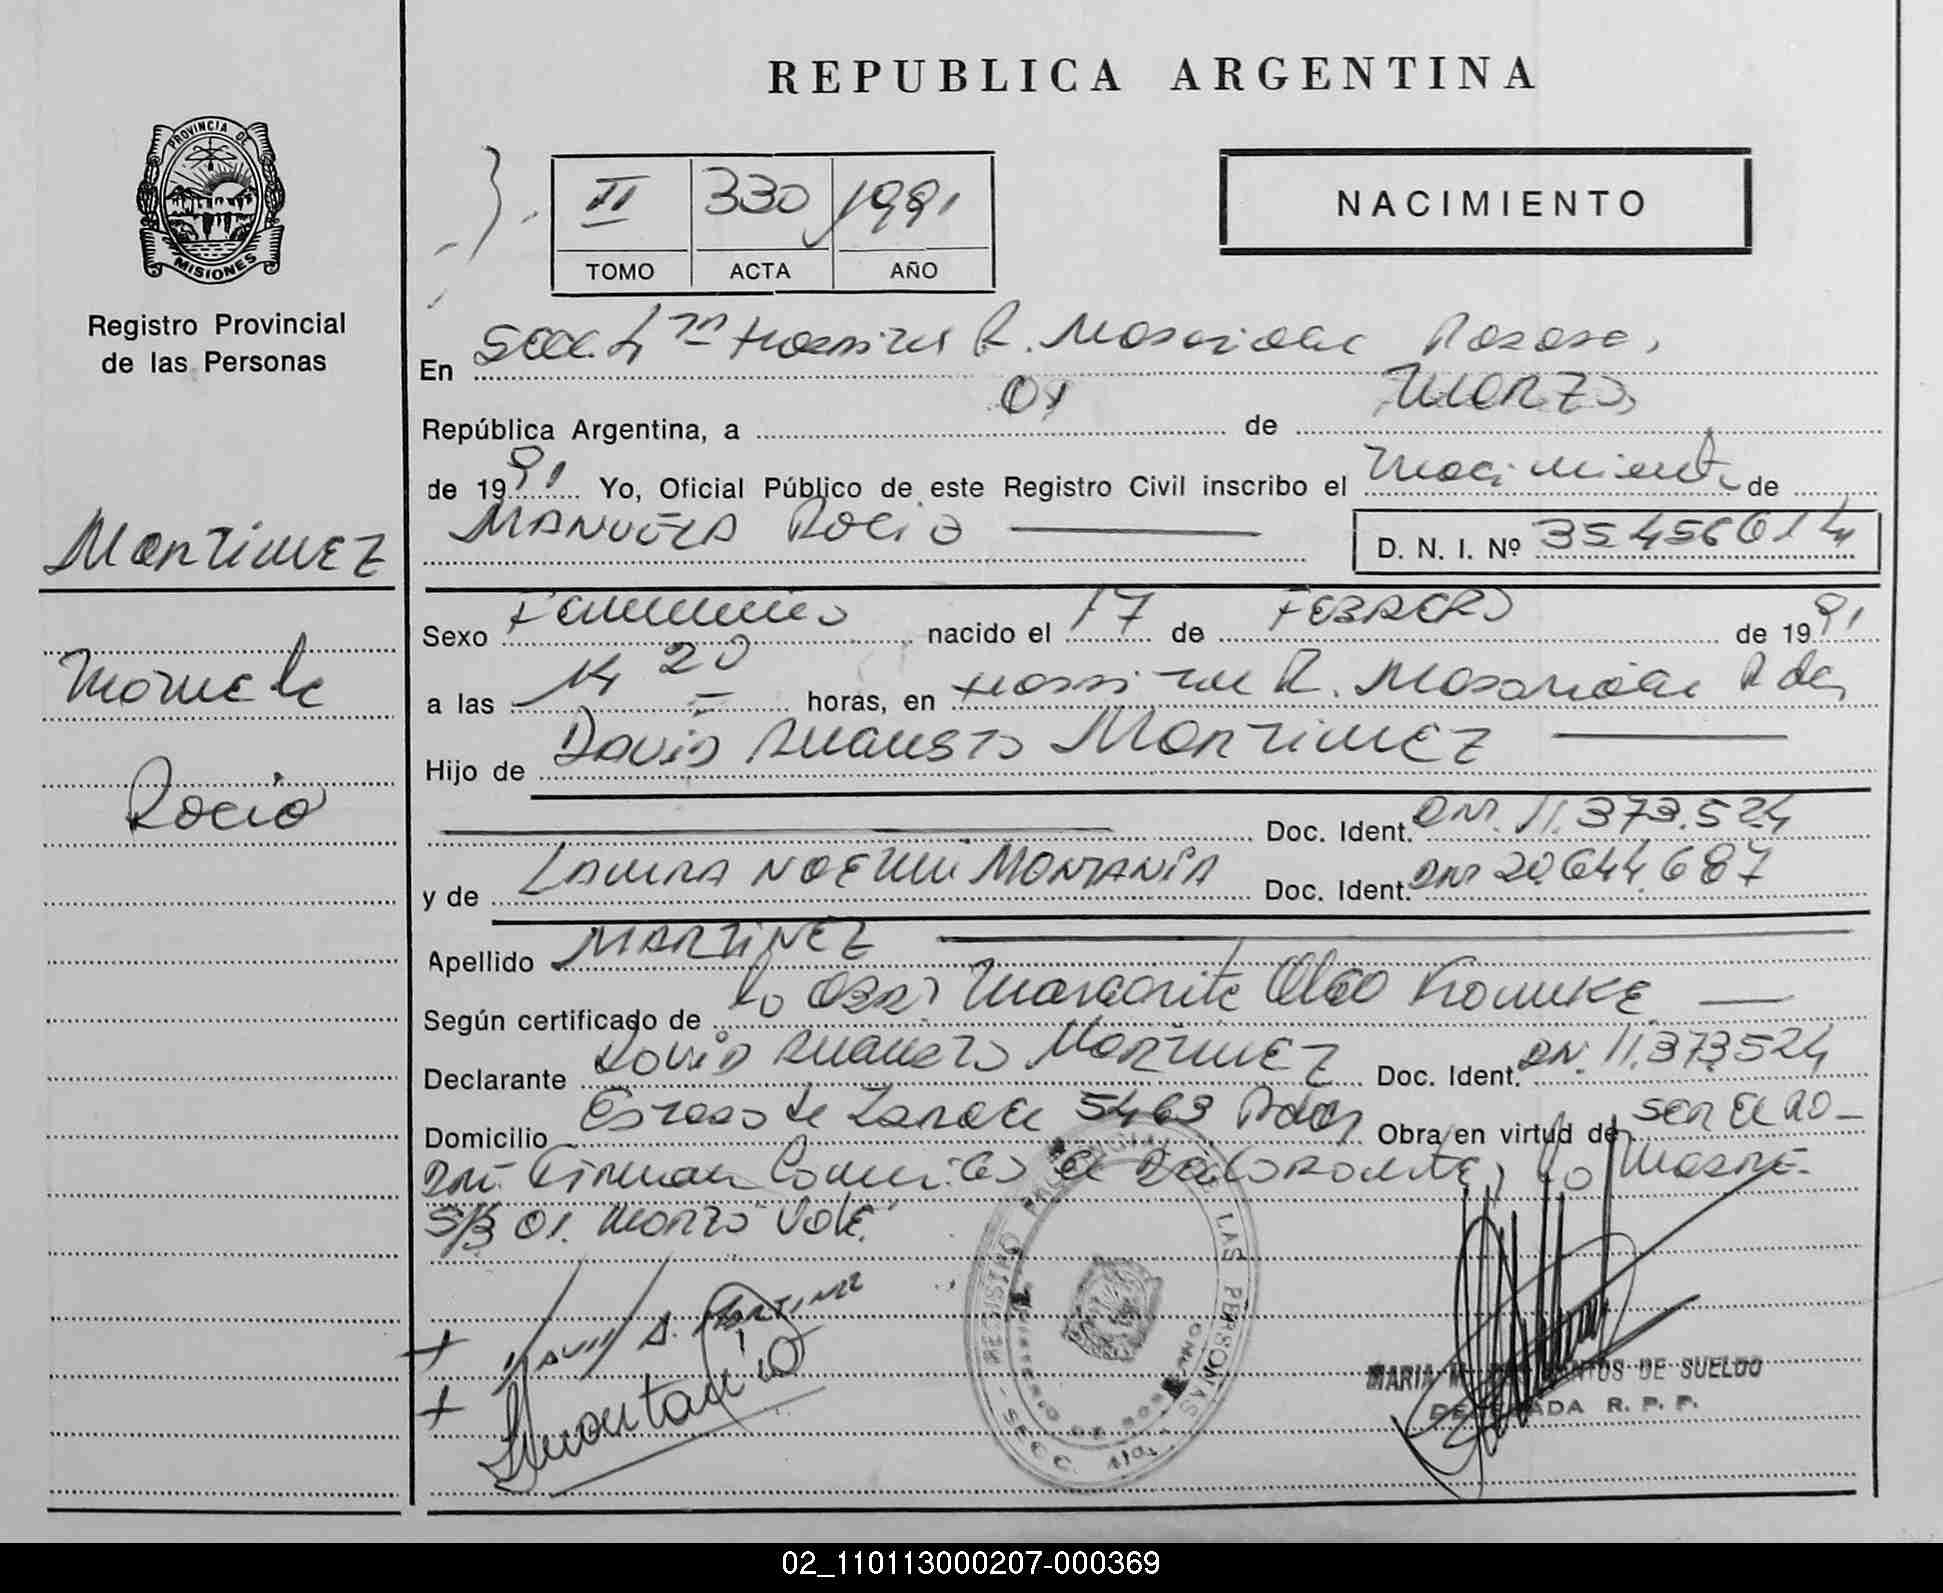 REPUBLICA ARGENTINA
PROVINCIA DE
MISIONES
Registro Provincial
de las Personas
II 330 1991
TOMO ACTA AÑO
NACIMIENTO
En Secc. 4ta R. Posadas,
República Argentina, a 01 de Marzo,
de 1991 Yo, Oficial Público de este Registro Civil inscribo el Nacimiento de
MANUELA Rocio D. N. I. Nº 35456014
Martinez
Manuela
Rocio
Sexo Femenino nacido el 17 de FEBRERO de 1991
a las 14 20 horas, en R. Pdas,
Hijo de David Augusto Martinez
Doc. Ident. DNI. 11.373.524
y de LAURA NOEMI MONTANIA Doc. Ident. DNI 20.644.687
Apellido MARTINEZ
Según certificado de la Obst. Margarita Olga
Declarante David Augusto Martinez Doc. Ident. DNI. 11.373.524
Domicilio de Zarate 5463 Pdas Obra en virtud de ser el
Firman el Declarante, la Madre.
S/B 01. Marzo "Vale"
David A. Martinez
LMontania
REGISTRO PROVINCIAL DE LAS PERSONAS
SECC.
MARIA M. SANTOS DE SUELDO
DELEGADA R. P. P.
02_110113000207-000369